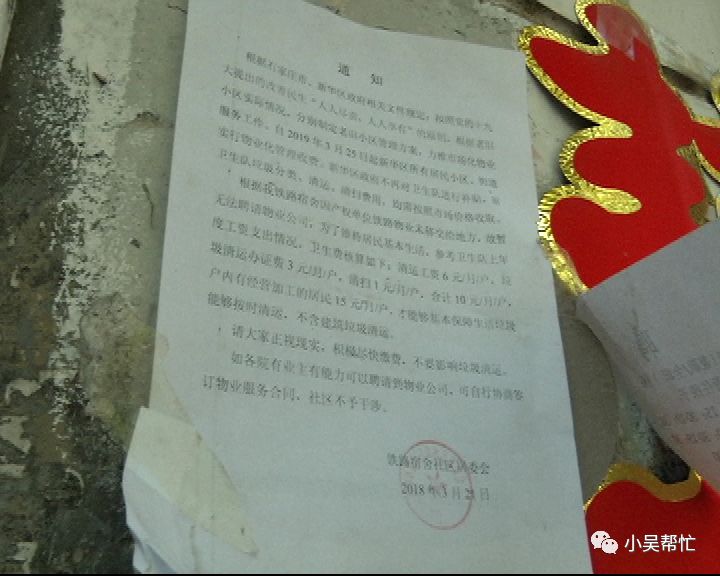 通 知
根据石家庄市、新华区政府相关文件规定：按照党的十九
大提出的改善民生“人人尽责，人人享有”的原则，根据老旧
小区实际情况，分别制定老旧小区管理方案，力推市场化物业
服务工作，自2019年3月25日起新华区所有居民小区、街道
实行物业化管理收费。新华区政府不再对卫生队进行补贴，家
卫生队垃圾分类、清运、清扫费用，均需按照市场价格收取。
根据我铁路宿舍因产权单位铁路物业未移交给地方，故暂
无法聘请物业公司，为了维持居民基本生活，参考卫生队上年
度工资支出情况，卫生费核算如下：清运工费6元/月/户，垃
圾清运办证费3元/月/户，清扫1元/月/户，合计10元/月/户，
户内有经营加工的居民15元/月/户，才能够基本保障生活垃圾
能够按时清运，不含建筑垃圾清运。
请大家正视现实，积极尽快缴费，不要影响垃圾清运。
如各院有业主有能力可以聘请到物业公司，可自行协商签
订物业服务合同，社区不予干涉。
铁路宿舍社区居委会
2018年3月25日
小吴帮忙